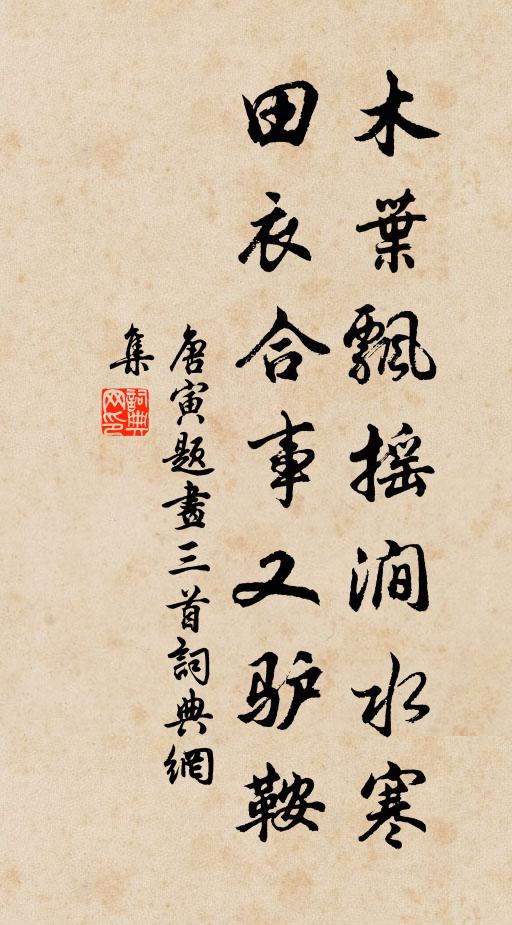 木葉飄摇澗水寒
田衣合事又驴鞍
唐寅題畫三首詞典網
集
詞典网印